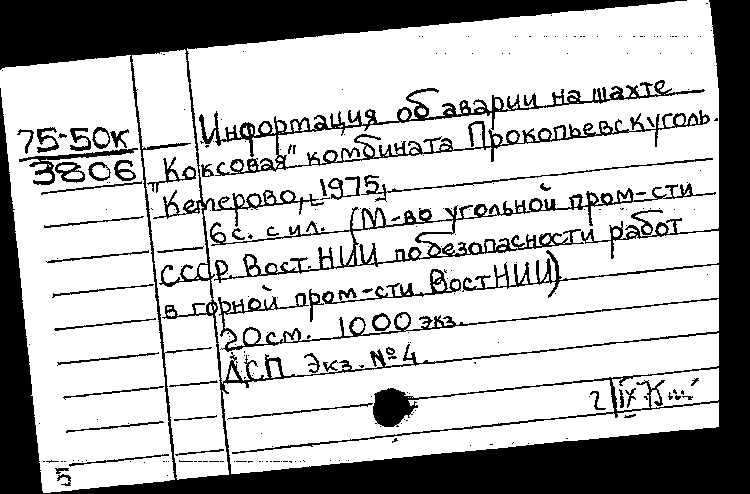 75-50к
3806
Информация об аварии на шахте
"Коксовая" комбината Прокопьевскуголь.
Кемерово, 1975.
6с. с ил. (М-во угольной пром-сти
СССР. Вост. НИИ по безопасности работ
в горной пром-сти. ВостНИИ)
20см. 1000 экз.
ДСП. Экз. №4.
2/IX 75
5